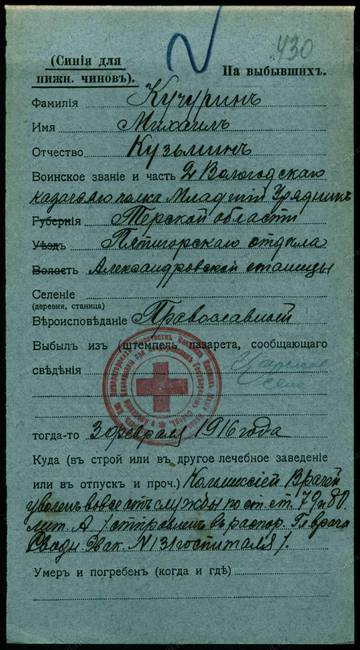 430
(Синія для
нижн. чиновъ).
На выбывшихъ.
Фамилія Кучуринъ
Имя Михаилъ
Отчество Кузьминъ
Воинское званіе и часть 2й Вологодскаго
казачьяго полка Младшій Урядникъ
Губернія Терской области
Уѣздъ Пятигорскаго отдѣла
Волость Александровской станицы
Селеніе
(деревни, станица)
Вѣроисповѣданіе Православный
Выбылъ изъ (штемпель лазарета, сообщающаго
свѣдѣнія
тогда-то 3 февраля 1916 года
Куда (въ строй или въ другое лечебное заведеніе
или въ отпускъ и проч.) Коммиссіей Врачей
уволенъ вовсе отъ службы по ст. ст. 79 и 80
лит. А отправленъ въ распор. Гл. врача
Сводн. Эвак. N 131 госпиталя).
Умеръ и погребенъ (когда и гдѣ)